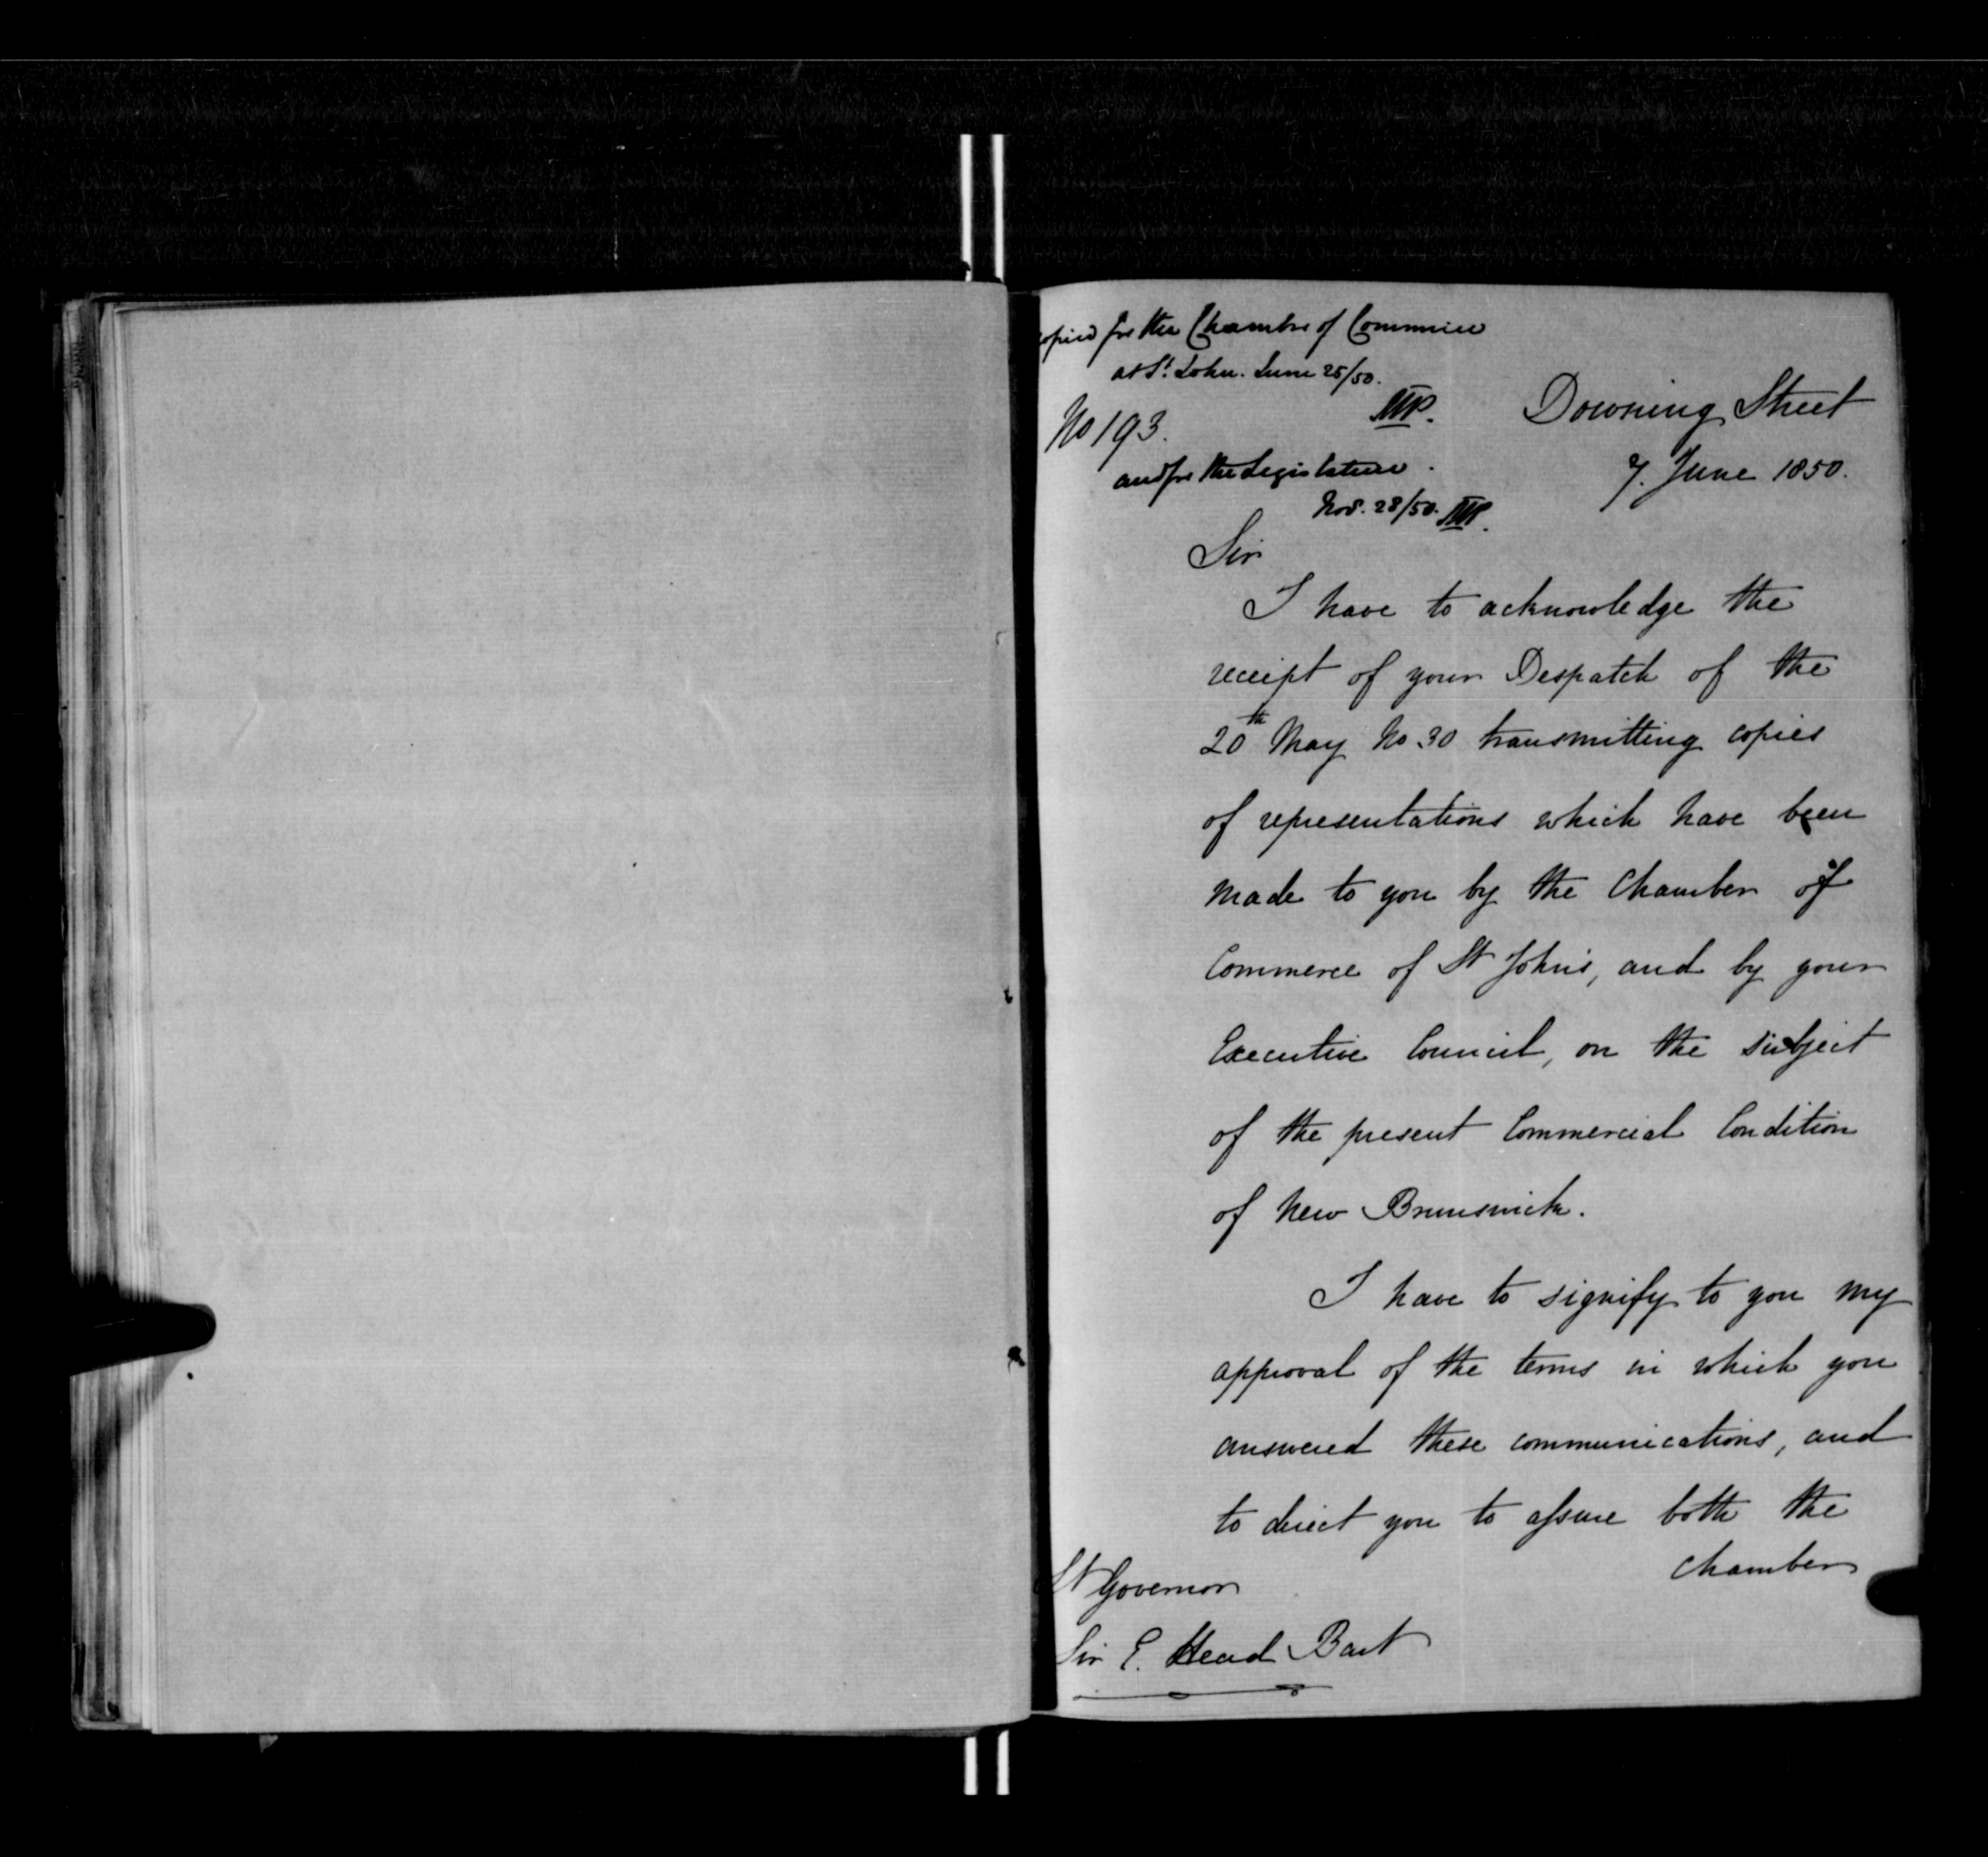 Copied for the Chamber of Commerce
at St. John. June 25/50.
No 193.
Downing Street
and for the Legislature.
7. June 1850.
Nov. 28/50.
Sir
I have to acknowledge the
receipt of your Despatch of the
20th May No 30 transmitting copies
of representations which have been
made to you by the Chamber of
Commerce of St John's, and by your
Executive Council, on the subject
of the present Commercial Condition
of New Brunswick.
I have to signify to you my
approval of the terms in which you
answered these communications, and
to direct you to assure both the
Chamber
Lt Governor
Sir E. Head Bart